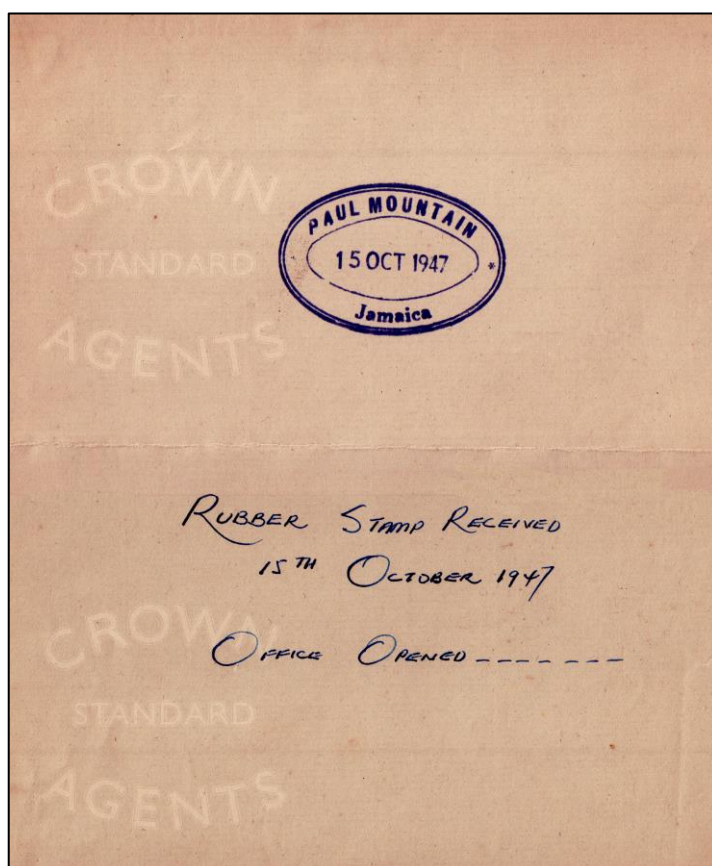 CROWN
STANDARD
AGENTS
PAUL MOUNTAIN
15 OCT 1947
*
Jamaica
RUBBER STAMP RECEIVED
15TH OCTOBER 1947
OFFICE OPENED -------
CROWN
STANDARD
AGENTS